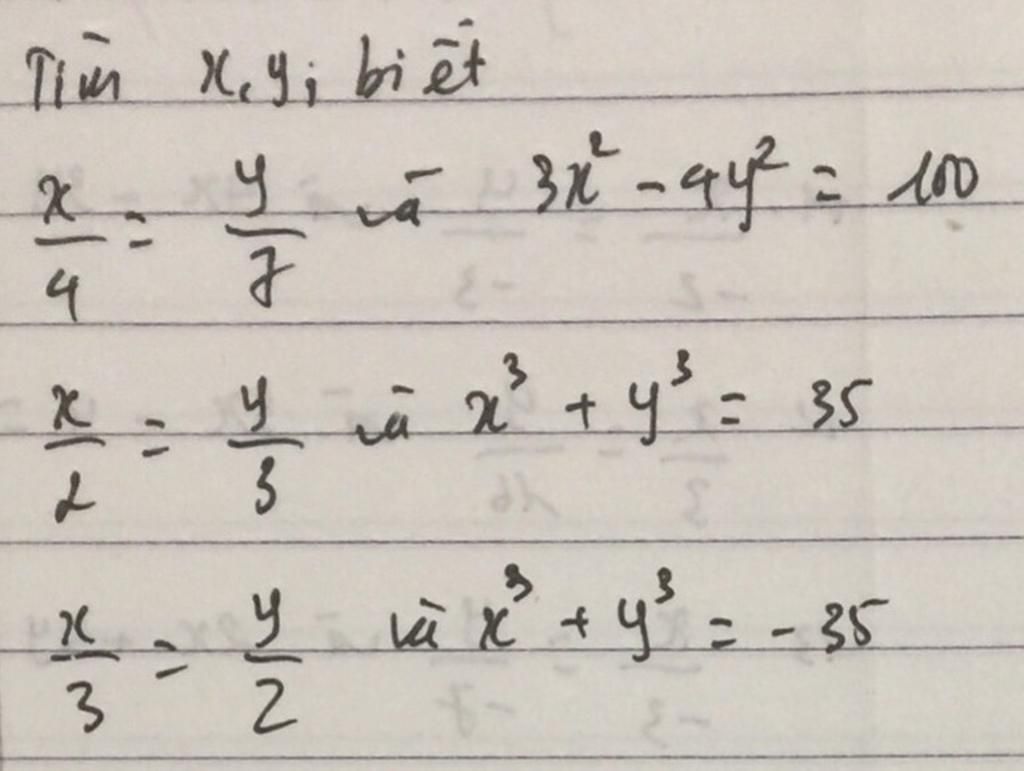 Tìm x, y; biết
x/4 = y/7 và 3x² - 4y² = 100
x/2 = y/3 và x³ + y³ = 35
x/3 = y/2 và x³ + y³ = -35